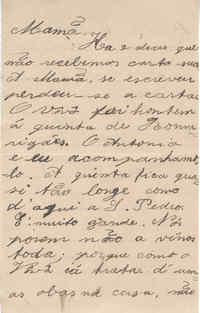 Mamã.
Ha 2 dias que
não recebemos carta sua
A Mamã, se escreveu
perdeu-se a carta.
O Vaz foi hontem
á quinta de
O Antonio
e eu acompanhamol-
o. A quinta fica qua
si tão longe como
d'aqui a S. Pedro.
E' muito grande. Nós
porem não a vimos
toda; porque como o
Vaz ia tratar d'um
as obas na casa, não